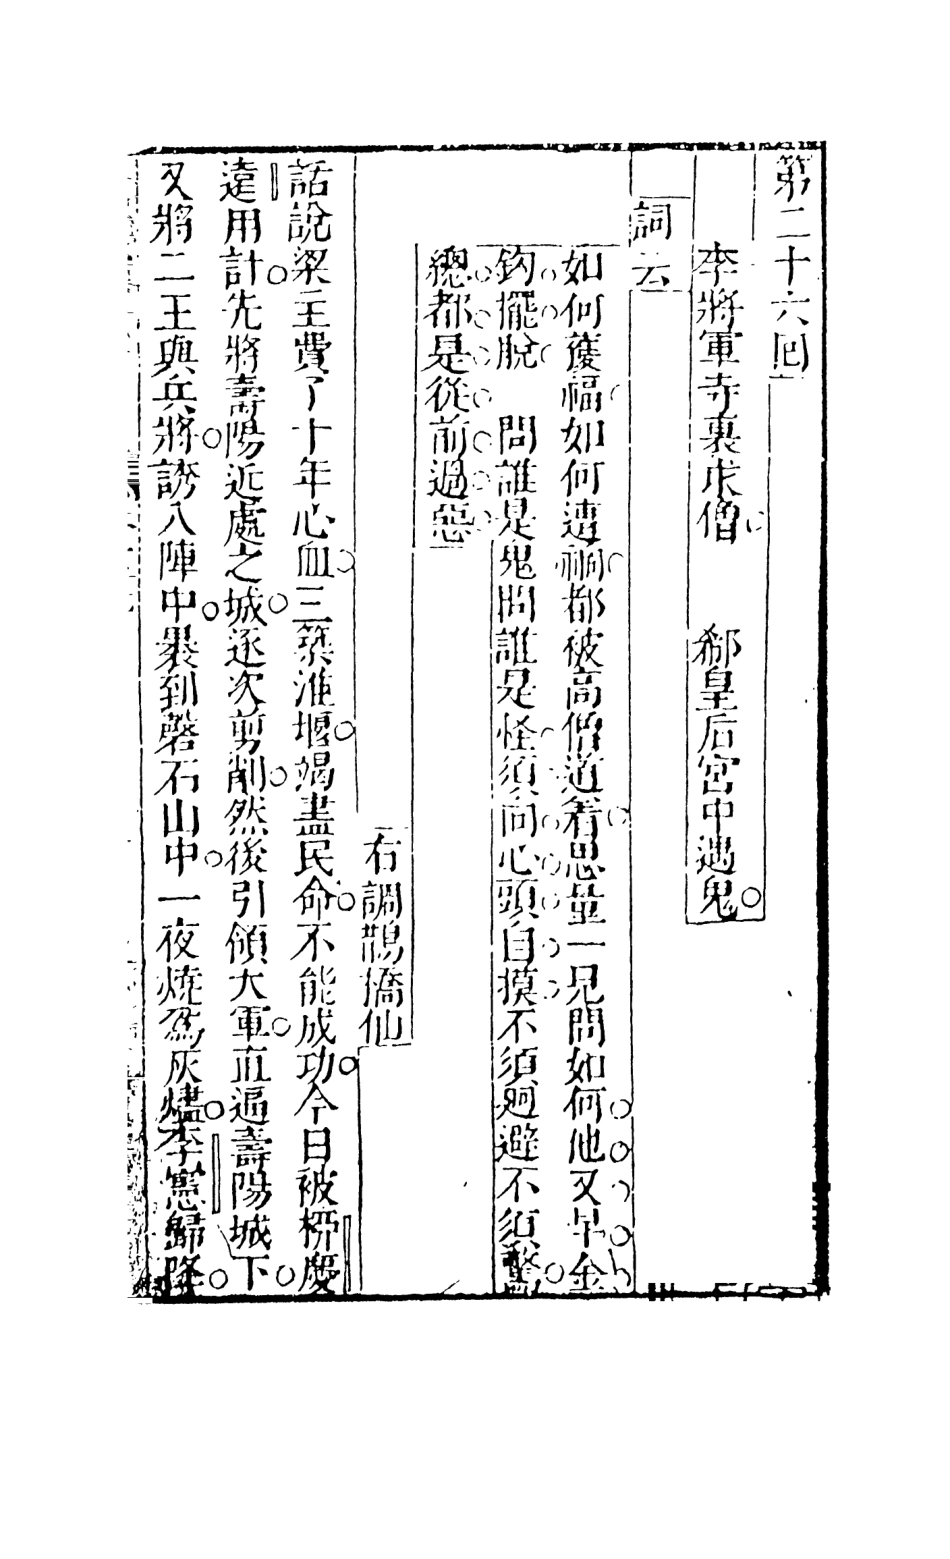 第二十六回
李將軍寺裏求僧　郗皇后宮中遇鬼
詞云
如何獲福如何遭禍都被高僧道着思量一見問如何他又早金
鈎擺脫　問誰是鬼問誰是怪須向心頭自摸不須廻避不須驚
總都是從前過惡
右調鵲橋仙
話說梁主費了十年心血三築淮堰竭盡民命不能成功今日被栁慶
遠用計先將壽陽近處之城逐次剪削然後引領大軍直逼壽陽城下
又將二王與兵將誘入陣中裹到磬石山中一夜燒爲灰燼李憲歸降